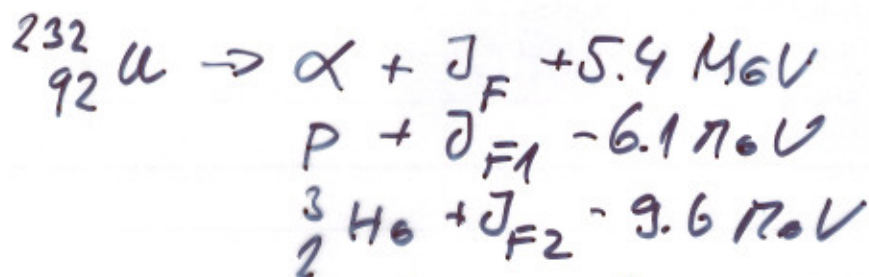 ²³²₉₂U → α + J_F + 5.4 MeV
p + J_F1 - 6.1 MeV
³₂He + J_F2 - 9.6 MeV